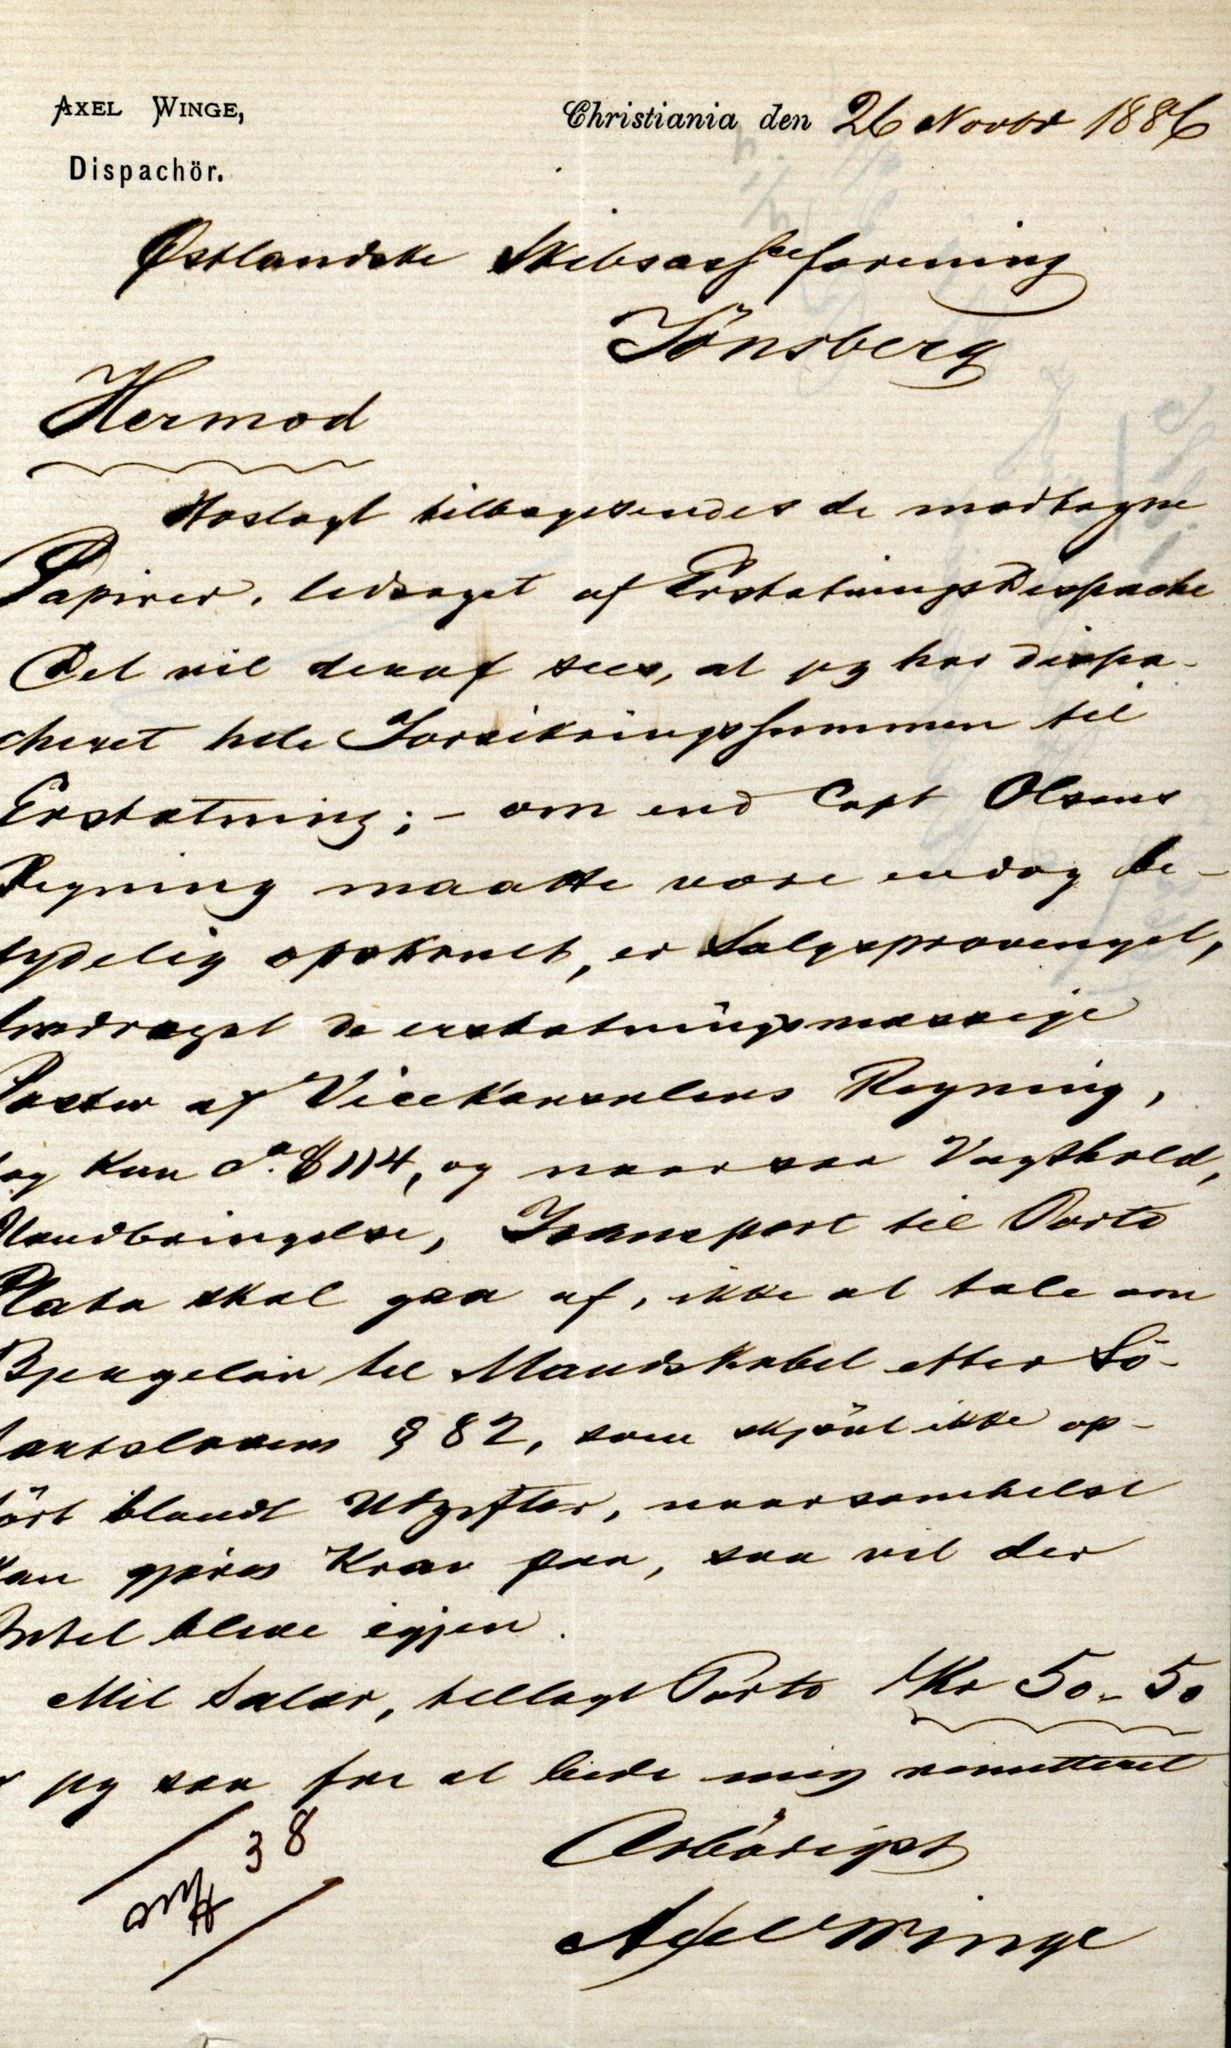 AXEL WINGE,
Dispachör.
Christiania den 26 Novbr 1886
Østlandske Skibsassceforening
Tönsberg
Hermod
Hoslagt tilbagesendes de modtagne
Papirer, ledsaget af ErstatningsDespache
Det vil deraf sees, at jeg har dispa-
cheret hele Forsikringssummen til
Erstatning; - om end Capt Olsens
Regning maatte være endog be-
tydelig opskruet, er Salgsprovenyet,
fradraget de erstatningsmæssige
Poster af Vicekonsulens Regning,
og kun ca. $ 114, og naar saa Vagthold,
Flaudbringelse, Transport til Porto
Plata skal gaa af, ikke at tale om
Bjergelön til Mandskabet efter Sö-
fartslovens § 82, som skjönt ikke op-
fört blandt Udgifter, naarsomhelst
kan gjöres Krav paa, saa vil der
Intet blive igjen.
Mit Salær, tillagt Porto Kr 50-50
jeg saa fri at bede mig remitteret
Ærbödigst
Axel Winge
38